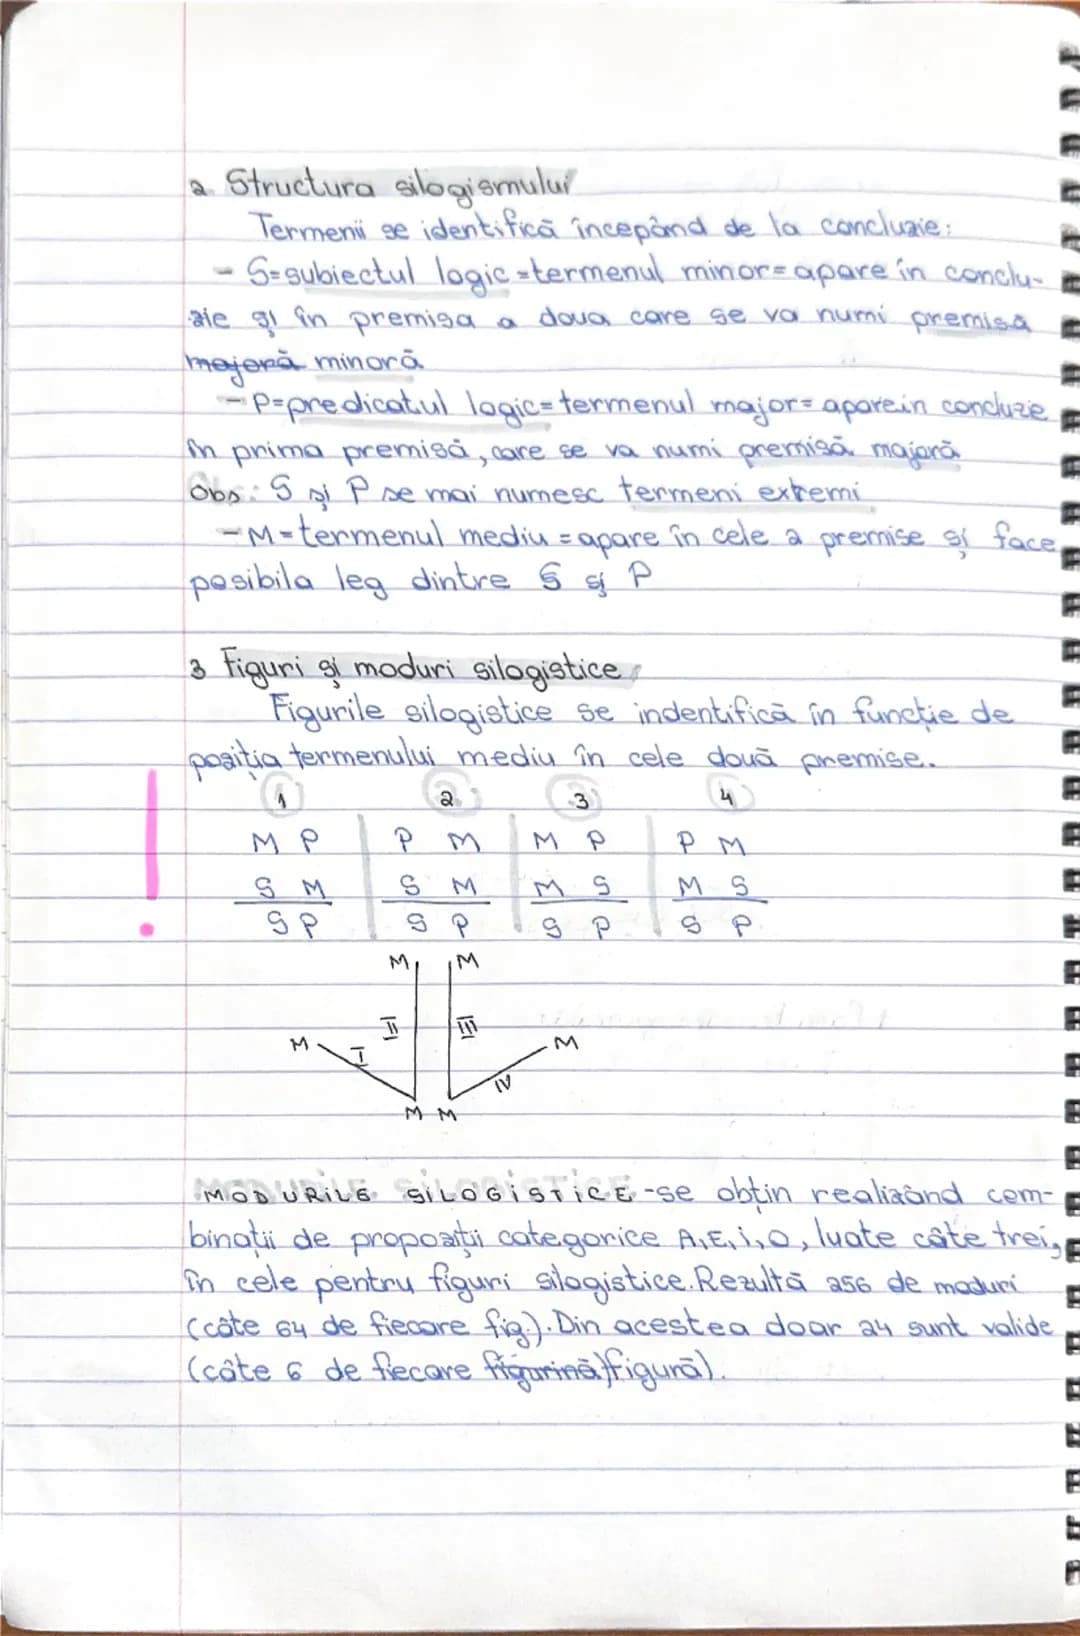 2. Structura silogismului
Termenii se identifică începând de la concluzie:
- S=subiectul logic=termenul minor=apare în conclu-
zie și în premisa a doua care se va numi premisa
majoră minoră
- P=predicatul logic=termenul major=apare in concluzie
în prima premisă, care se va numi premisă majoră
Obs: S și P se mai numesc termeni extremi
- M=termenul mediu=apare în cele 2 premise și face
posibila leg dintre S și P
3 Figuri și moduri silogistice
Figurile silogistice se indentifică în funcție de
poziția termenului mediu în cele două premise.
! 1 2 3 4
M P P M M P P M
S M S M M S M S
S P S P S P S P
M M
II III
M I M
IV
M M
MODURILE SILOGISTICE -se obțin realizând com-
binații de propoziții categorice A,E,i,O, luate câte trei,
în cele pentru figuri silogistice. Rezultă 256 de moduri
(câte 64 de fiecare fig.). Din acestea doar 24 sunt valide
(câte 6 de fiecare figurină) figură).